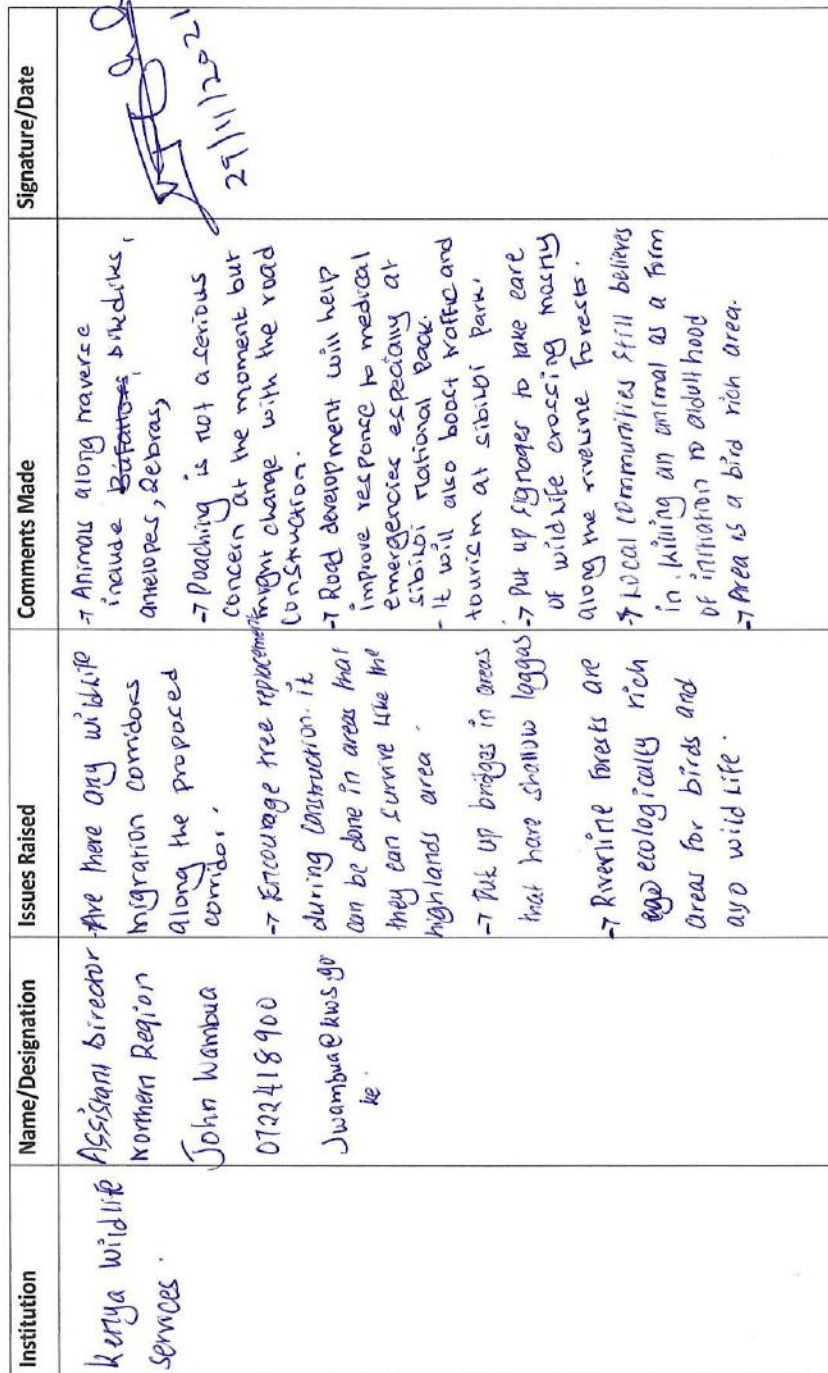 Institution
Name/Designation
Issues Raised
Comments Made
Signature/Date
Kenya Wildlife
services.
Assistant Director
Northern Region
John Wambua
0722418900
Jwambua@kws.go
ke.
- Are there any wildlife
migration corridors
along the proposed
corridor.
→ Encourage tree replacement
during construction. it
can be done in areas that
they can survive like the
highlands area.
→ Put up bridges in areas
that have shallow laggas
→ Riverline forests are
ego ecologically rich
areas for birds and
also wildlife.
→ Animals along traverse
include Buffalloes, dikdiks,
antelopes, Zebras,
→ Poaching is not a serious
concern at the moment but
might change with the road
construction.
→ Road development will help
improve response to medical
emergencies especially at
sibiloi National Pack.
- It will also boost traffic and
tourism at sibiloi park.
→ Put up signages to take care
of wildlife crossing mostly
along the riverine forests.
→ Local communities still believes
in killing an animal as a form
of initiation to adulthood
→ Area is a bird rich area.
29/11/2021